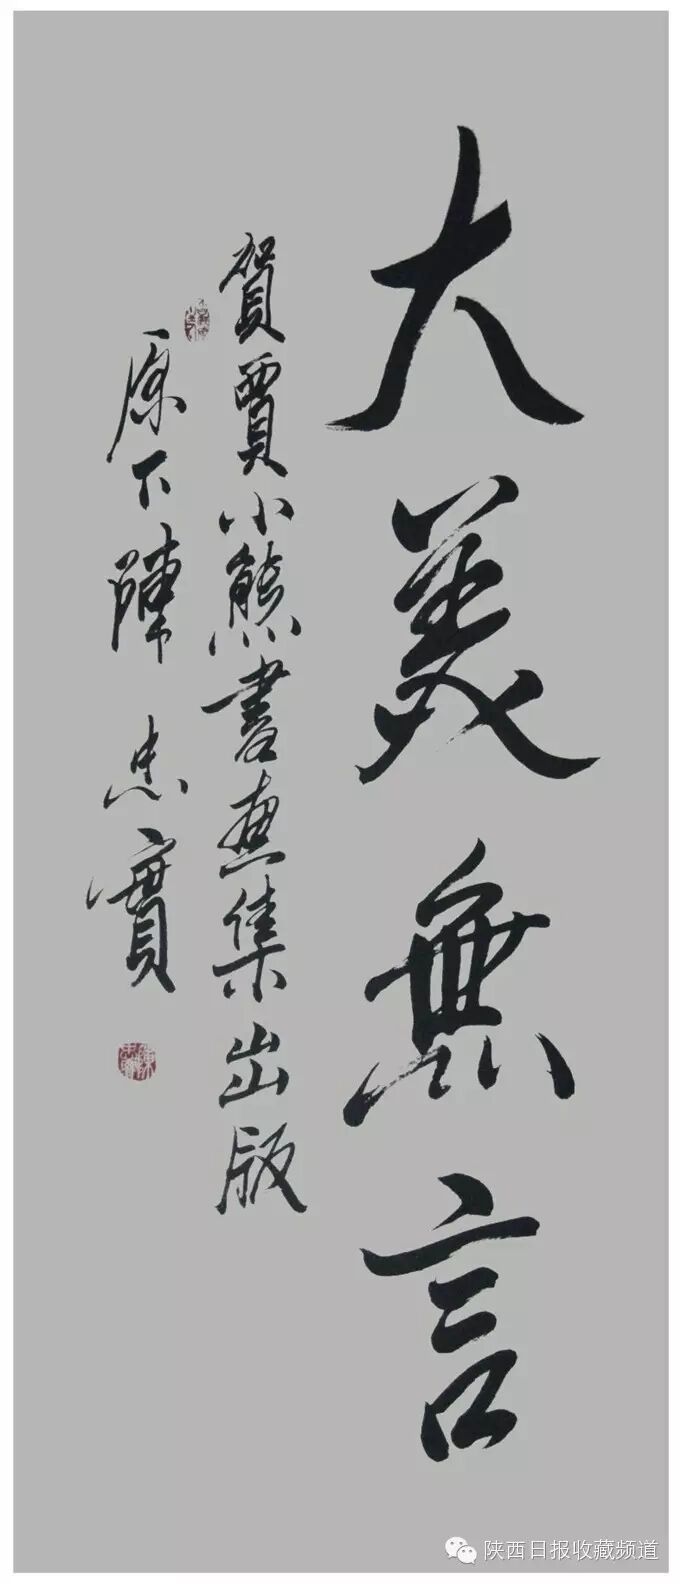 大美無言
賀賈小熊書畫集出版
原下陳忠實
陕西日报收藏频道